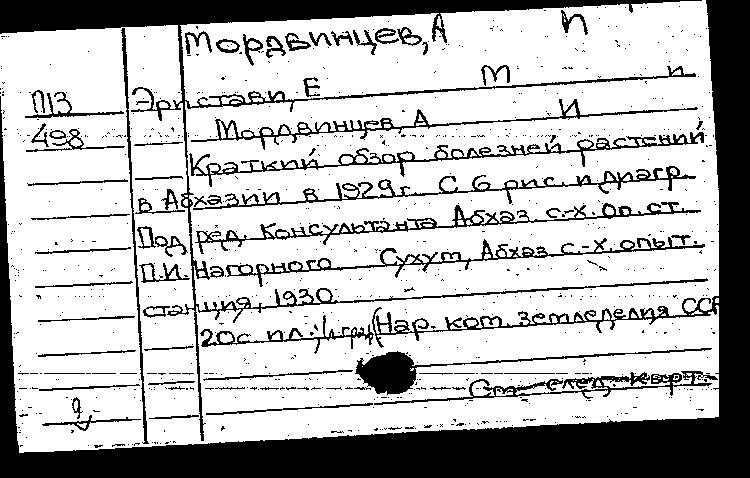 Мордвинцев, А И
П13 Эристави, Е М и
498 Мордвинцев, А И
Краткий обзор болезней растений
в Абхазии в 1929 г. С 6 рис. и диагр.
Под ред. Консультанта Абхаз. с.-х. оп. ст.
П.И. Нагорного. Сухум, Абхаз. с.-х. опыт.
станция, 1930
20с. ил.; (Нар. ком. земледелия ССР
См. след. карт.